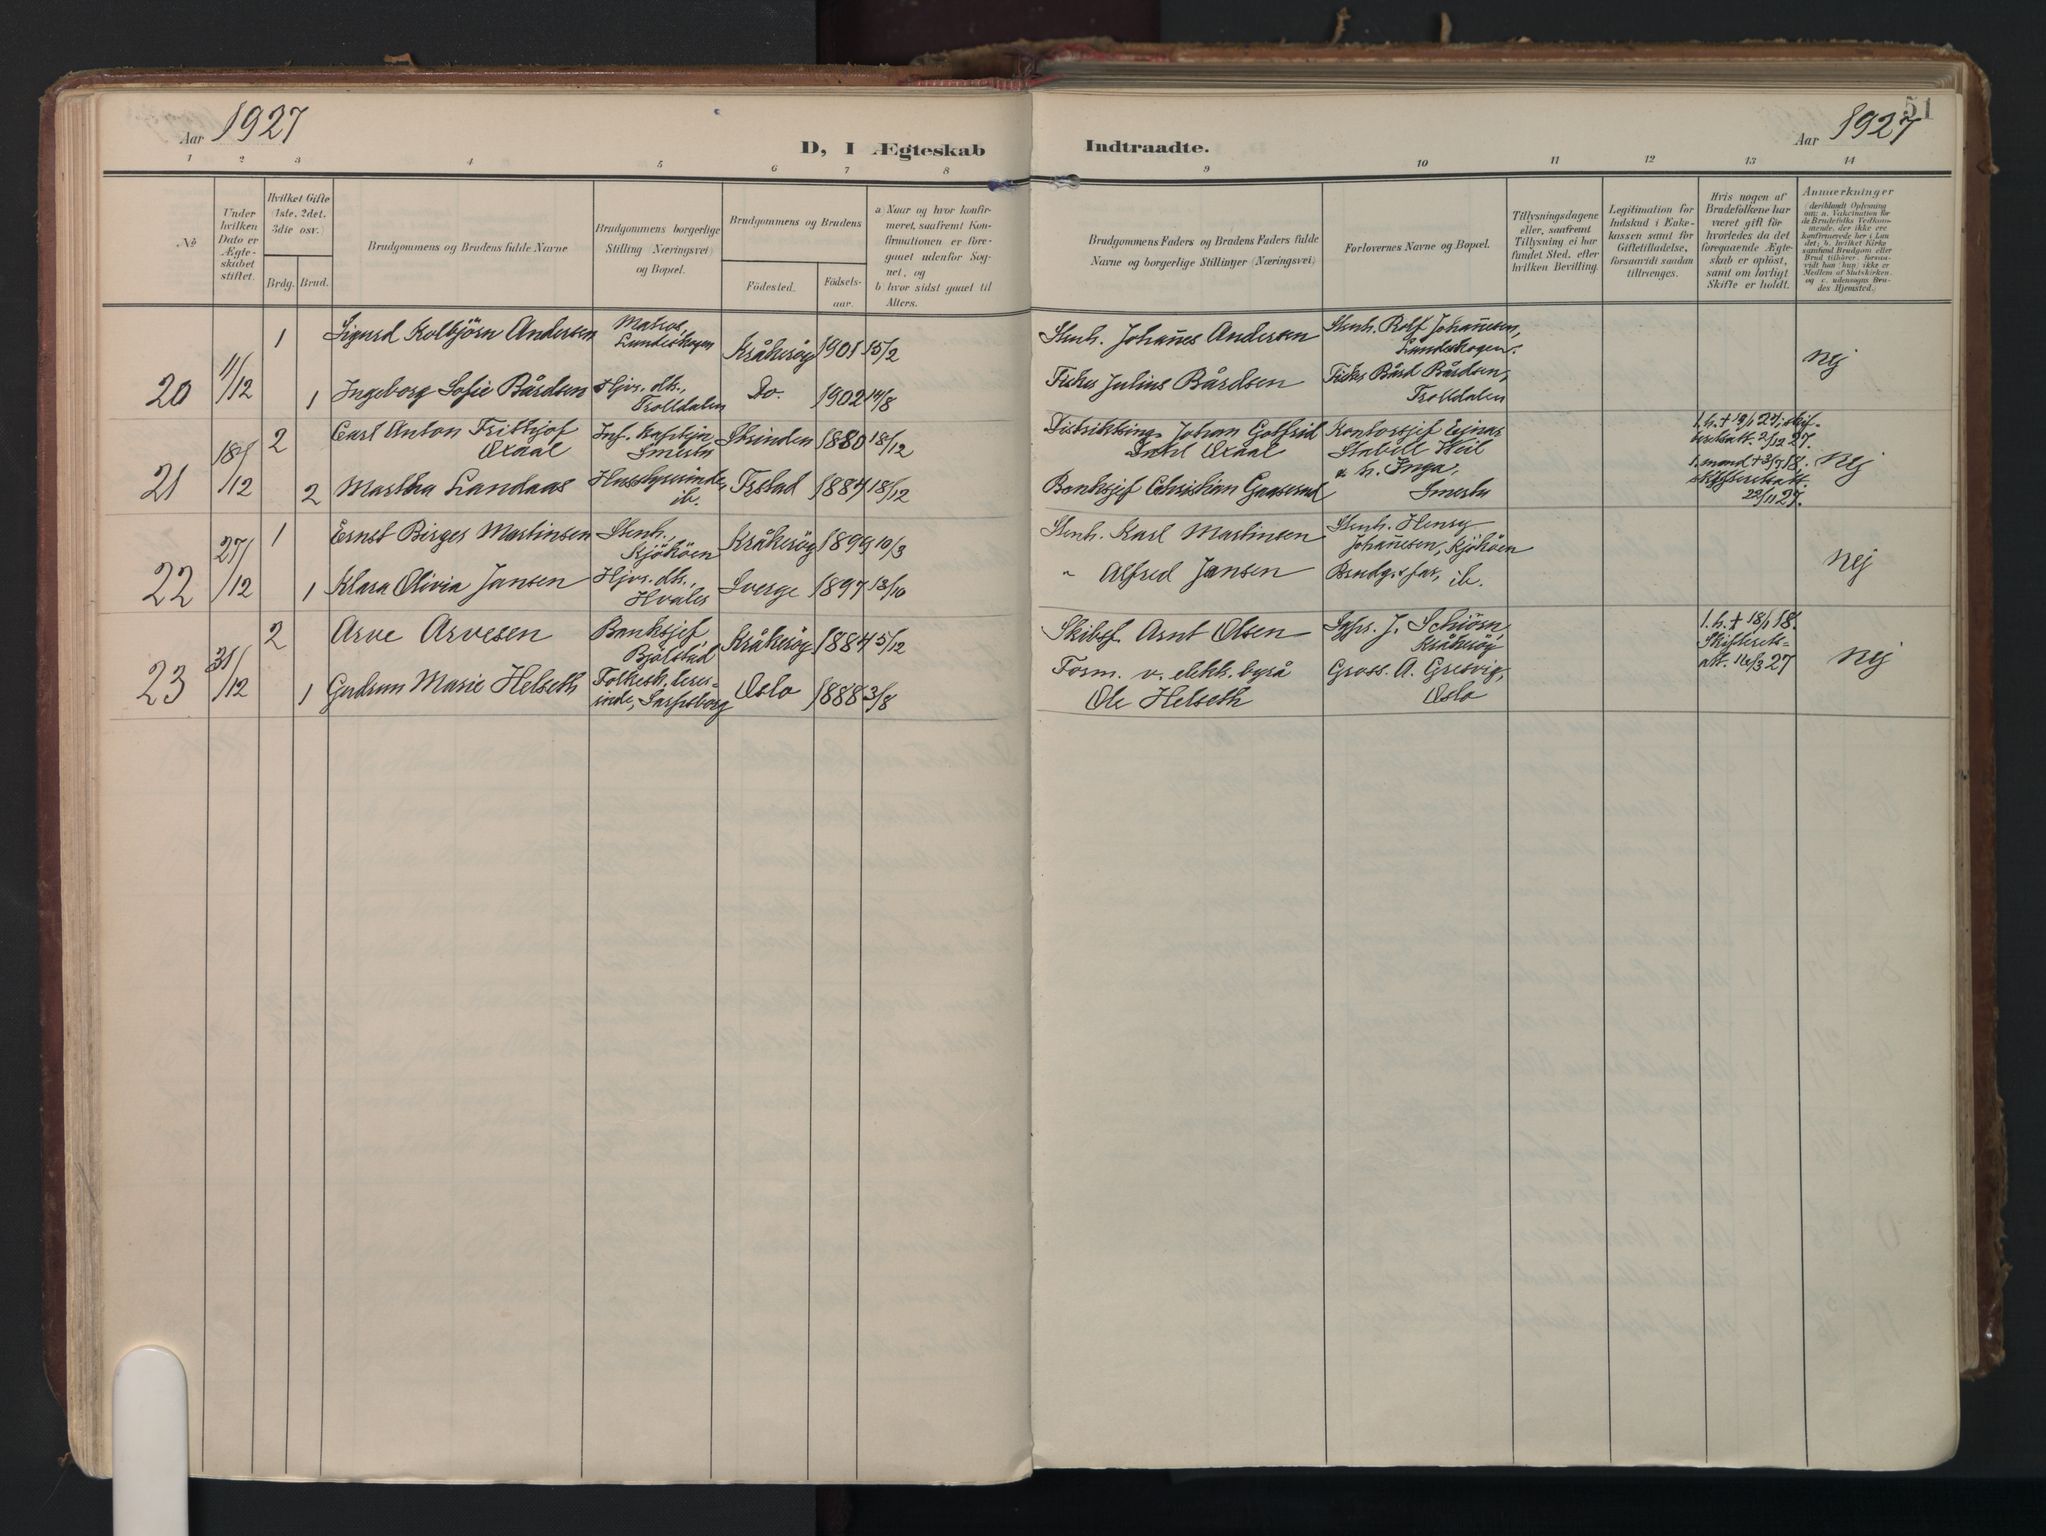 Aar 1927
D, I Ægteskab
Indtraadte.
Aar 1927
51
1 2 3 4 5 6 7 8 9 10 11 12 13 14
No
Under
hvilken
Dato er
Ægte-
skabet
stiftet.
Hvilket Gifte
(1ste, 2det,
3die osv.)
Brdg. Brud.
Brudgommens og Brudens fulde Navne
Brudgommens borgerlige
Stilling (Næringsvei)
og Bopæl.
Brudgommens og Brudens
Födested.
Födsels-
aar.
a) Naar og hvor konfir-
meret, saafremt Kon-
firmationen er fore-
gaaet udenfor Sog-
net, og
b) hvor sidst gaaet til
Alters.
Brudgommens Faders og Brudens Faders fulde
Navne og borgerlige Stillinger (Næringsvei)
Forlovernes Navne og Bopæl.
Tillysningsdagene
eller, saafremt
Tillysning ei har
fundet Sted, efter
hvilken Bevilling.
Legitimation for
Indskud i Enke-
kassen samt for
Giftetilladelse,
forsaavidt saadan
tiltrænges.
Hvis nogen af
Brudefolkene har
været gift för
hvorledes da det
foregaaende Ægte-
skab er oplöst,
samt om lovligt
Skifte er holdt.
Anmærkninger
(deriblandt Oplysning
om: a. Vakcination for
de Brudefolks Vedkom-
mende, der ikke ere
konfirmerede her i Lan-
det; b. hvilket Kirke
samfund Brudgom eller
Brud tilhörer, forsaa-
vidt han (hun) ikke er
Medlem af Statskirken,
og c. udensogns Bru-
des Hjemsted.)
20 11/12
1 Sigurd Kolbjörn Andersen Matros, Lundeskogen Kråkeröy 1901 15/2
Stenh. Johañes Andersen
Stenh. Rolf Johañesen,
Lundeskogen.
1 Ingeborg Sofie Bårdsen Hjv. dtr., Trolldalen Do. 1902 14/8
Fisker Julius Bårdsen
Fisker Bård Bårdsen,
Trolldalen
nej
21 18/12
2 Carl Anton Fritjof Oxaal Inf. kaptein Smestu Strinden 1880 18/12
Distriktsing. Johan Gotfrid
Dahl Oxaal
Kontorsjef Ejnar
Stabell Weil
1. h. + 19/1 24, skif-
teretsatt. 2/12 27.
2 Martha Landaas Husbestyrerinde, ib. Tistad 1884 18/12
Banksjef Christian Gaaserud
& h. Inga,
Smestu
1. mand + 3/7 18.
skifteretsatt.
22/11 27.
nej
22 27/12
1 Ernst Birger Martinsen Stenh. Kjököen Kråkeröy 1899 10/3
Stenh. Karl Martinsen
Stenh. Henry
Johañesen, Kjököen
1 Klara Olivia Jansen Hjv. dtr., Hvaler Sverge 1897 13/10
" Alfred Jansen
Brudg.s far, ib.
nej
23 31/12
2 Arve Arvesen Banksjef, Bjölstad Kråkeröy 1884 5/12
Skibsf. Arnt Olsen
Sgpr. J. Schiörn
Kråkeröy
1. h. + 18/1 18.
Skifterets-
att. 16/3 27
1 Gudrun Marie Helseth Folkesk. lærer-
inde, Sarpsborg Oslo 1888 3/8
Form. v. elekt. byrå
Ole Helseth
Gross. A. Gresvig,
Oslo
nej